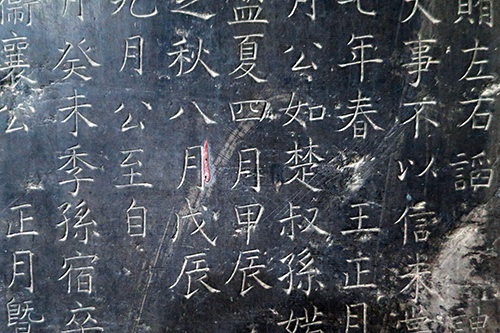 左右謟
大事不以信未
七年春 王正月
月公如楚叔孫婼
盟夏四月甲辰
之秋八月戊辰
九月公至自
月癸未季孫宿卒
衛襄公 正月暨